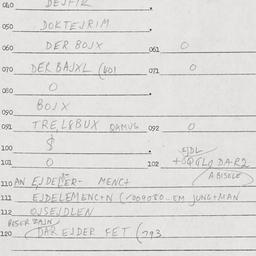 040 DEJFIR
050 DOKTEJRIM
060 DER BOJX 061 0
070 DER BAJXL (401 071 0
080 0
090 BOJX
091 TREL&BUX QAMUS 092 0
100 $
101 0 102 +OQGLQ DAR2
EJDL
A BISELE
110 AN EJDELER- MENC+
111 EJDELEMENC+N EM JUNG+MAN
112 OJSEJDLEN
BESER ZAJN
120 DAR EJDER FET (793